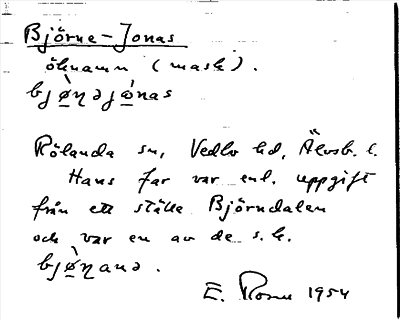 Björne-Jonas
öknamn (mask).
bjøɳəjònas
Rölanda sn, Vedbo hd, Älvsb. l.
Hans far var enl. uppgift
från ett ställe Björndalen
och var en av de s.k.
bjøɳanə.
E. 1954